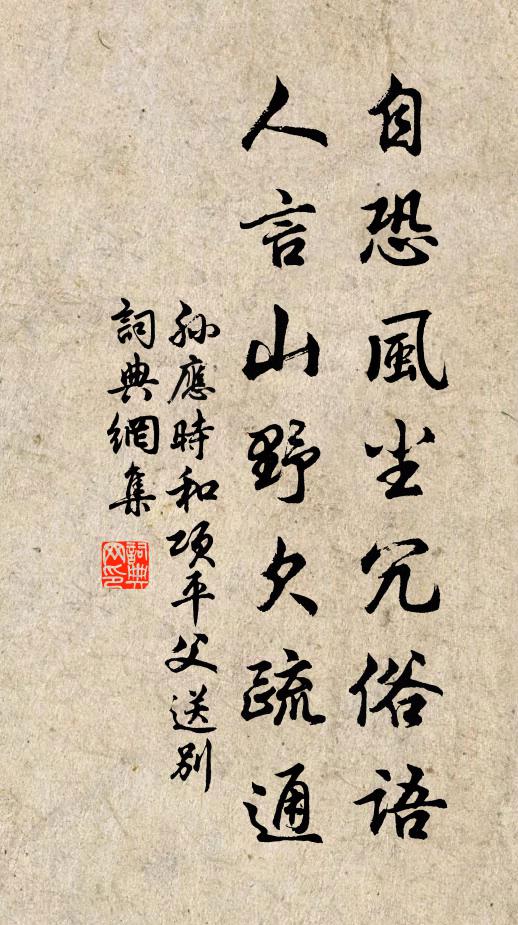 自恐風尘冗俗語
人言山野欠疏通
孙應時和项平父送别
詞典網集
詞典网印